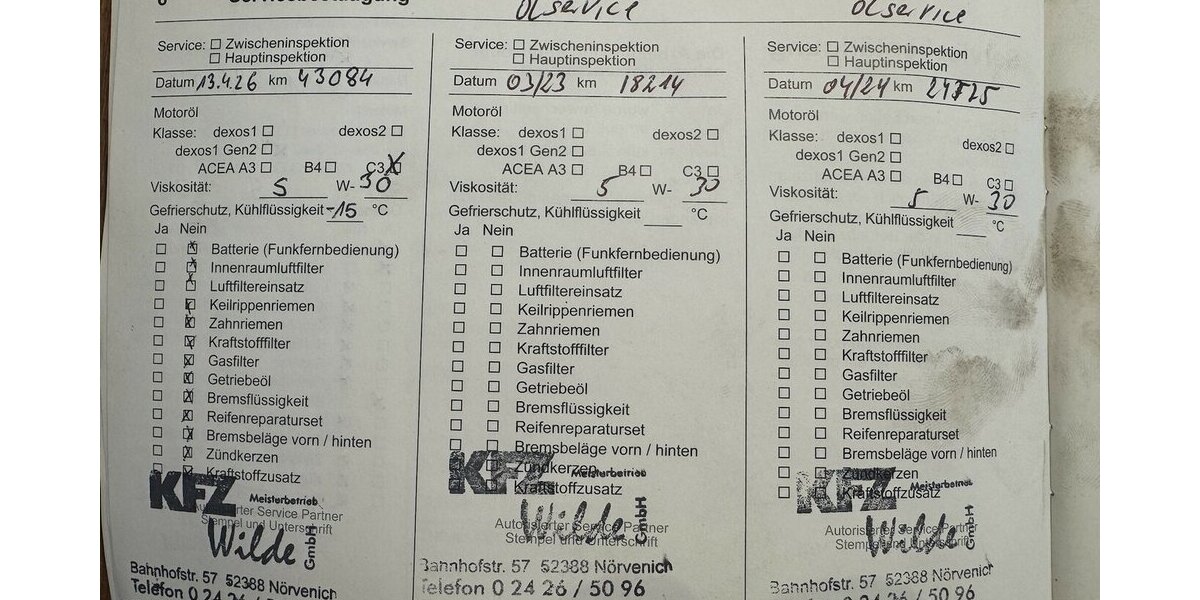 Ölservice
Ölservice
Service: Zwischeninspektion
Hauptinspektion
Datum 13.4.26 km 43084
Motoröl
Klasse: dexos1 dexos2
dexos1 Gen2
ACEA A3 B4 C3 X
Viskosität: 5 W-30
Gefrierschutz, Kühlflüssigkeit -15 °C
Ja Nein
Batterie (Funkfernbedienung)
Innenraumluftfilter
Luftfiltereinsatz
Keilrippenriemen
Zahnriemen
Kraftstofffilter
Gasfilter
Getriebeöl
Bremsflüssigkeit
Reifenreparaturset
Bremsbeläge vorn / hinten
Zündkerzen
Kraftstoffzusatz
KFZ Meisterbetrieb
Service Partner
Stempel und Unterschrift
Wilde GmbH
Bahnhofstr. 57 52388 Nörvenich
Telefon 0 24 26 / 50
Service: Zwischeninspektion
Hauptinspektion
Datum 03/23 km 18214
Klasse: dexos1 dexos2
dexos1 Gen2
ACEA A3 B4 C3
Viskosität: 5 W- 30
Gefrierschutz, Kühlflüssigkeit °C
Ja Nein
Batterie (Funkfernbedienung)
Innenraumluftfilter
Luftfiltereinsatz
Keilrippenriemen
Zahnriemen
Kraftstofffilter
Gasfilter
Getriebeöl
Bremsflüssigkeit
Reifenreparaturset
Bremsbeläge vorn / hinten
Zündkerzen
Kraftstoffzusatz
KFZ Meisterbetrieb
Autorisierter Service Partner
Stempel und Unterschrift
Wilde GmbH
Bahnhofstr. 57 52388 Nörvenich
Telefon 0 24 26 / 50 96
Service: Zwischeninspektion
Hauptinspektion
Datum 04/24 km
Motoröl
Klasse: dexos1 dexos2
dexos1 Gen2
ACEA A3 B4 C3
Viskosität: 5 W- 30
Gefrierschutz, Kühlflüssigkeit °C
Ja Nein
Batterie (Funkfernbedienung)
Innenraumluftfilter
Luftfiltereinsatz
Keilrippenriemen
Zahnriemen
Kraftstofffilter
Gasfilter
Getriebeöl
Bremsflüssigkeit
Reifenreparaturset
Bremsbeläge vorn / hinten
Zündkerzen
Kraftstoffzusatz
KFZ Meisterbetrieb
Autorisierter Service Partner
Stempel und Unterschrift
Wilde GmbH
Bahnhofstr. 57 52388 Nörvenich